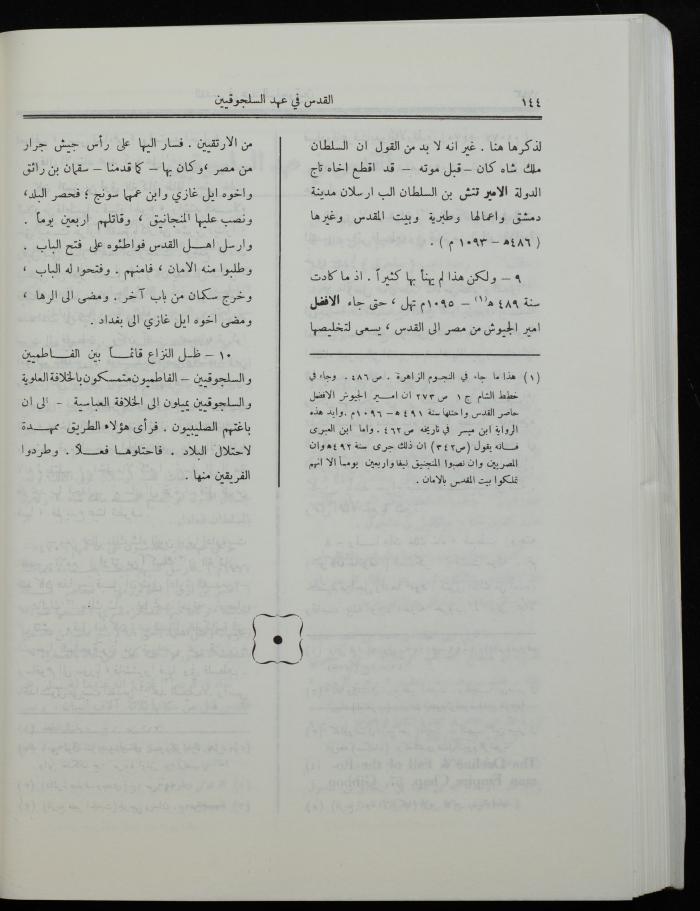 ١٤٤
القدس في عهد السلجوقيين
لذكرها هنا . غير انه لا بد من القول ان السلطان
ملك شاه كان – قبل موته – قد اقطع اخاه تاج
الدولة الامير تتش بن السلطان الب ارسلان مدينة
دمشق واعمالها وطبرية وبيت المقدس وغيرها
( ٤٨٦ ه – ١٠٩٣ م ) .
٩ – ولكن هذا لم يهنأ بها كثيراً . اذ ما كادت
سنة ٤٨٩ ه (١) – ١٠٩٥م تهل ، حتى جاء الافضل
امير الجيوش من مصر الى القدس ، يسعى لتخليصها
(١) هذا ما جاء في النجوم الزاهرة . ص ٤٨٦ . وجاء في
خطط الشام ج ١ ص ٢٧٣ ان امير الجيوش الافضل
حاصر القدس واحتلها سنة ٤٩١ ه – ١٠٩٦ م . وايد هذه
الرواية ابن ميسر في تاريخه ص ٤٦٢ . واما ابن العبرى
فانه يقول (ص ٣٤٢) ان ذلك جرى سنة ٤٩٢ ه وان
المصريين وان نصبوا المنجنيق نيفا واربعين يوماً الا انهم
تملكوا بيت المقدس بالامان .
من الارتقيين . فسار اليها على رأس جيش جرار
من مصر ، وكان بها – كما قدمنا – سقمان بن راتق
واخوه ايل غازي وابن عمها سونج ؛ فحصر البلد،
ونصب عليها المنجانيق ، وقاتلهم اربعين يوماً .
وارسل اهل القدس فواطئوه على فتح الباب .
وطلبوا منه الامان ، فامنهم . وفتحوا له الباب ،
وخرج سكمان من باب آخر . ومضى الى الرها ،
ومضى اخوه ايل غازي الى بغداد .
١٠ – ظل النزاع قائماً بين الفاطميين
والسلجوقيين – الفاطميون متمسكون بالخلافة العلوية
والسلجوقيين يميلون الى الخلافة العباسية – الى ان
باغتهم الصليبيون . فرأى هؤلاء الطريق ممهدة
لاحتلال البلاد . فاحتلوها فعلاً . وطردوا
الفريقين منها .